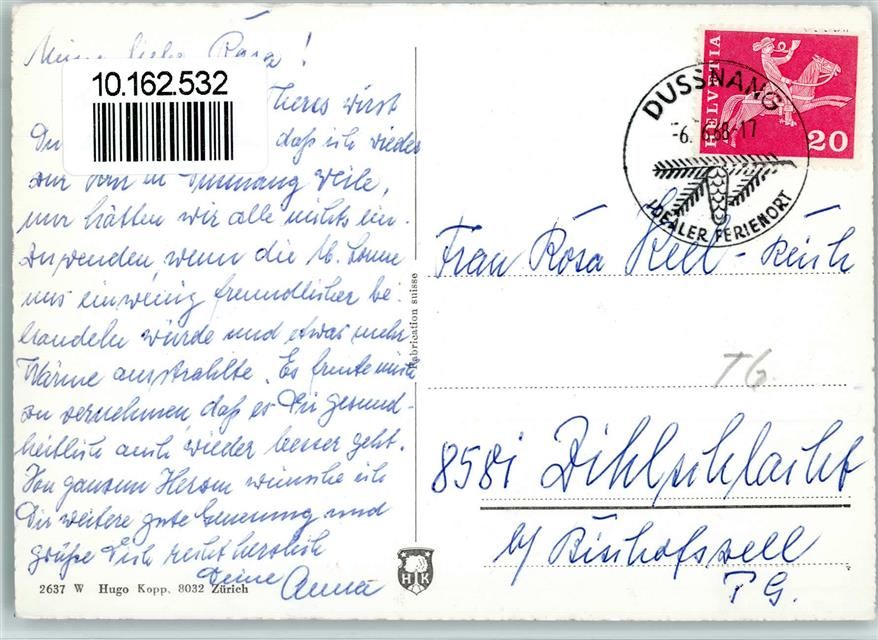 Meine liebe Rösa!
10.162.532
Theres wirst
Du daß ich wieder
zur Kur in Dussnang weile,
nur hätten wir alle nichts ein-
zuwenden, wenn die lb. Sonne
uns ein wenig freundlicher be-
handeln würde und etwas mehr
Wärme ausstrahlte. Es freute mich
zu vernehmen, daß es Dir gesund-
heitlich auch wieder besser geht.
Von ganzem Herzen wünsche ich
Dir weitere gute Genesung und
grüße Dich recht herzlich
Deine Anna
2637 W Hugo Kopp, 8032 Zürich
Fabrication suisse
HK
HELVETIA
20
DUSSNANG
-6. 6.68-17
IDEALER FERIENORT
Frau Rösa Kell-
TG
8581 Dihlschlacht
b/ Bischofszell
TG.